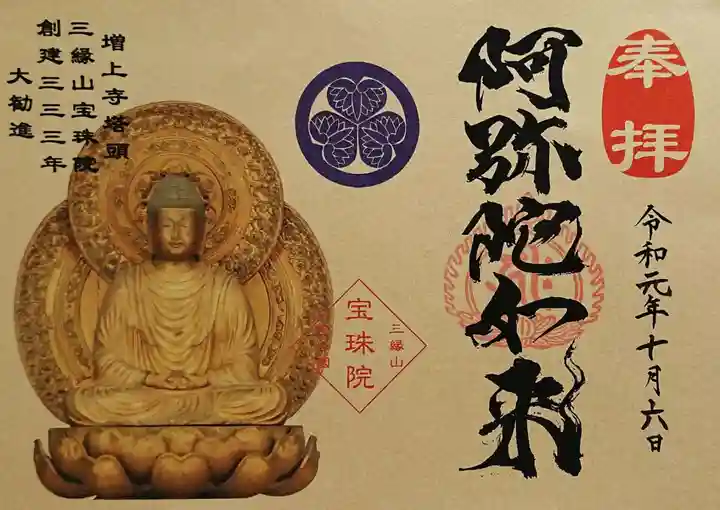 奉拝
令和元年十月六日
阿弥陀如来
増上寺塔頭
三縁山宝珠院
創建三三三年
大勧進
三縁山
宝珠院